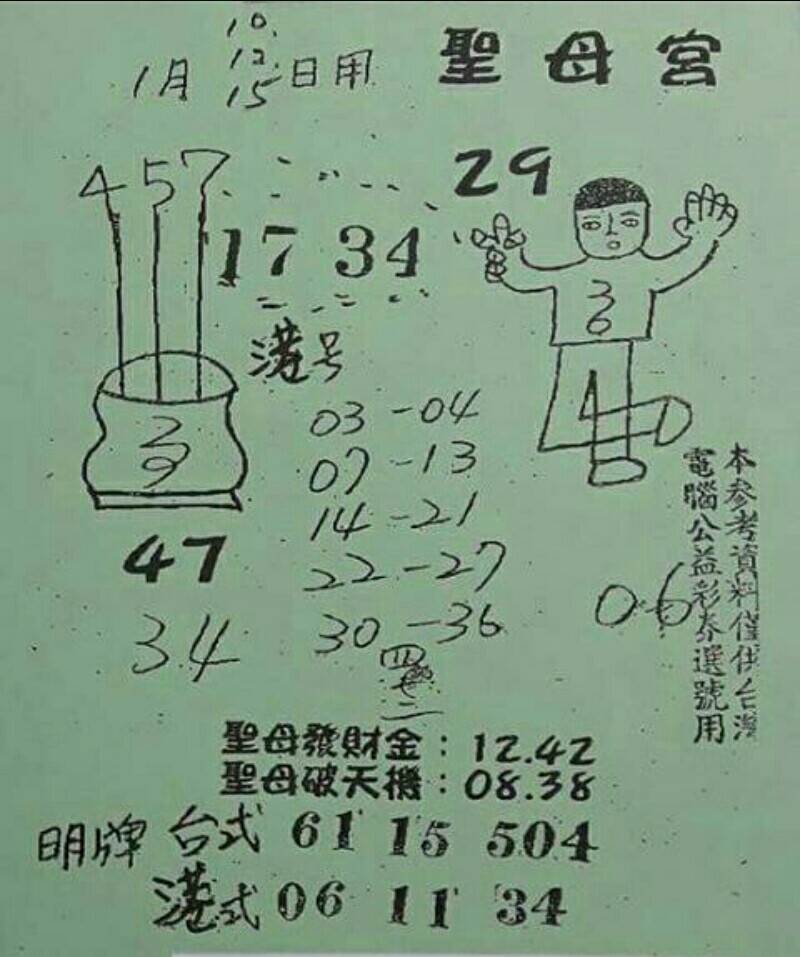 聖母宮
1月 10. 12. 15 日用
4 5 7
29
17 34
36
港号
03-04
07-13
14-21
22-27
30-36
47
34
06
本参考資料僅供台灣
電腦公益彩券選號用
聖母發財金：12.42
聖母破天機：08.38
明牌 台式 61 15 504
港式 06 11 34